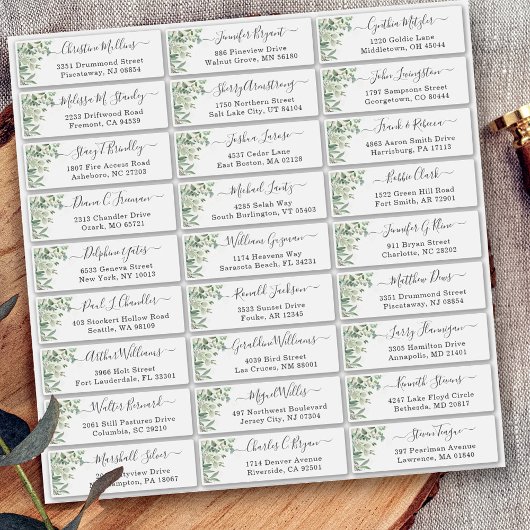 Christine Mullins
3251 Drummond Street
Piscataway, NJ 08854
Jennifer Bryant
886 Pineview Drive
Walnut Grove, MN 56180
Cynthia Metzler
1220 Goldie Lane
Middletown, OH 45044
Melissa M. Standey
2233 Driftwood Road
Fremont, CA 94539
Sherry Armstrong
1750 Northern Street
Salt Lake City, UT 84104
John Livingston
1797 Sampsons Street
Georgetown, CO 80444
Stacy T Brindley
1807 Fire Access Road
Asheboro, NC 27203
Joshua Larose
4537 Cedar Lane
East Boston, MA 02128
Frank & Rebecca
4863 Aaron Smith Drive
Harrisburg, PA 17113
Diana C. Freeman
2313 Chandler Drive
Ozark, MO 65721
Michael Lantz
4285 Selah Way
South Burlington, VT 05403
Robbie Clark
1522 Green Hill Road
Fort Smith, AR 72901
Delphine Yates
6533 Geneva Street
New York, NY 10013
William Guzman
1174 Heavens Way
Sarasota Beach, FL 34231
Jennifer G Kline
911 Bryan Street
Charlotte, NC 28202
Paul L Chandler
403 Stockert Hollow Road
Seattle, WA 98109
Ronald Jackson
3533 Sunset Drive
Fouke, AR 12345
Matthew Dews
3351 Drummond Street
Piscataway, NJ 08854
Arthur Williams
3966 Holt Street
Fort Lauderdale, FL 33301
Geraldine Williams
4039 Bird Street
Las Cruces, NM 88001
Larry Flannigan
3305 Hamilton Drive
Annapolis, MD 21401
Walter Bernard
2061 Still Pastures Drive
Columbia, SC 29210
Miguel Willis
497 Northwest Boulevard
Jersey City, NJ 07304
Kenneth Stevens
4247 Lake Floyd Circle
Bethesda, MD 20817
Marshall Silver
Drive
PA 18067
Charles C Bryan
1714 Denver Avenue
Riverside, CA 92501
Steven Teague
397 Pearlman Avenue
Lawrence, MA 01840